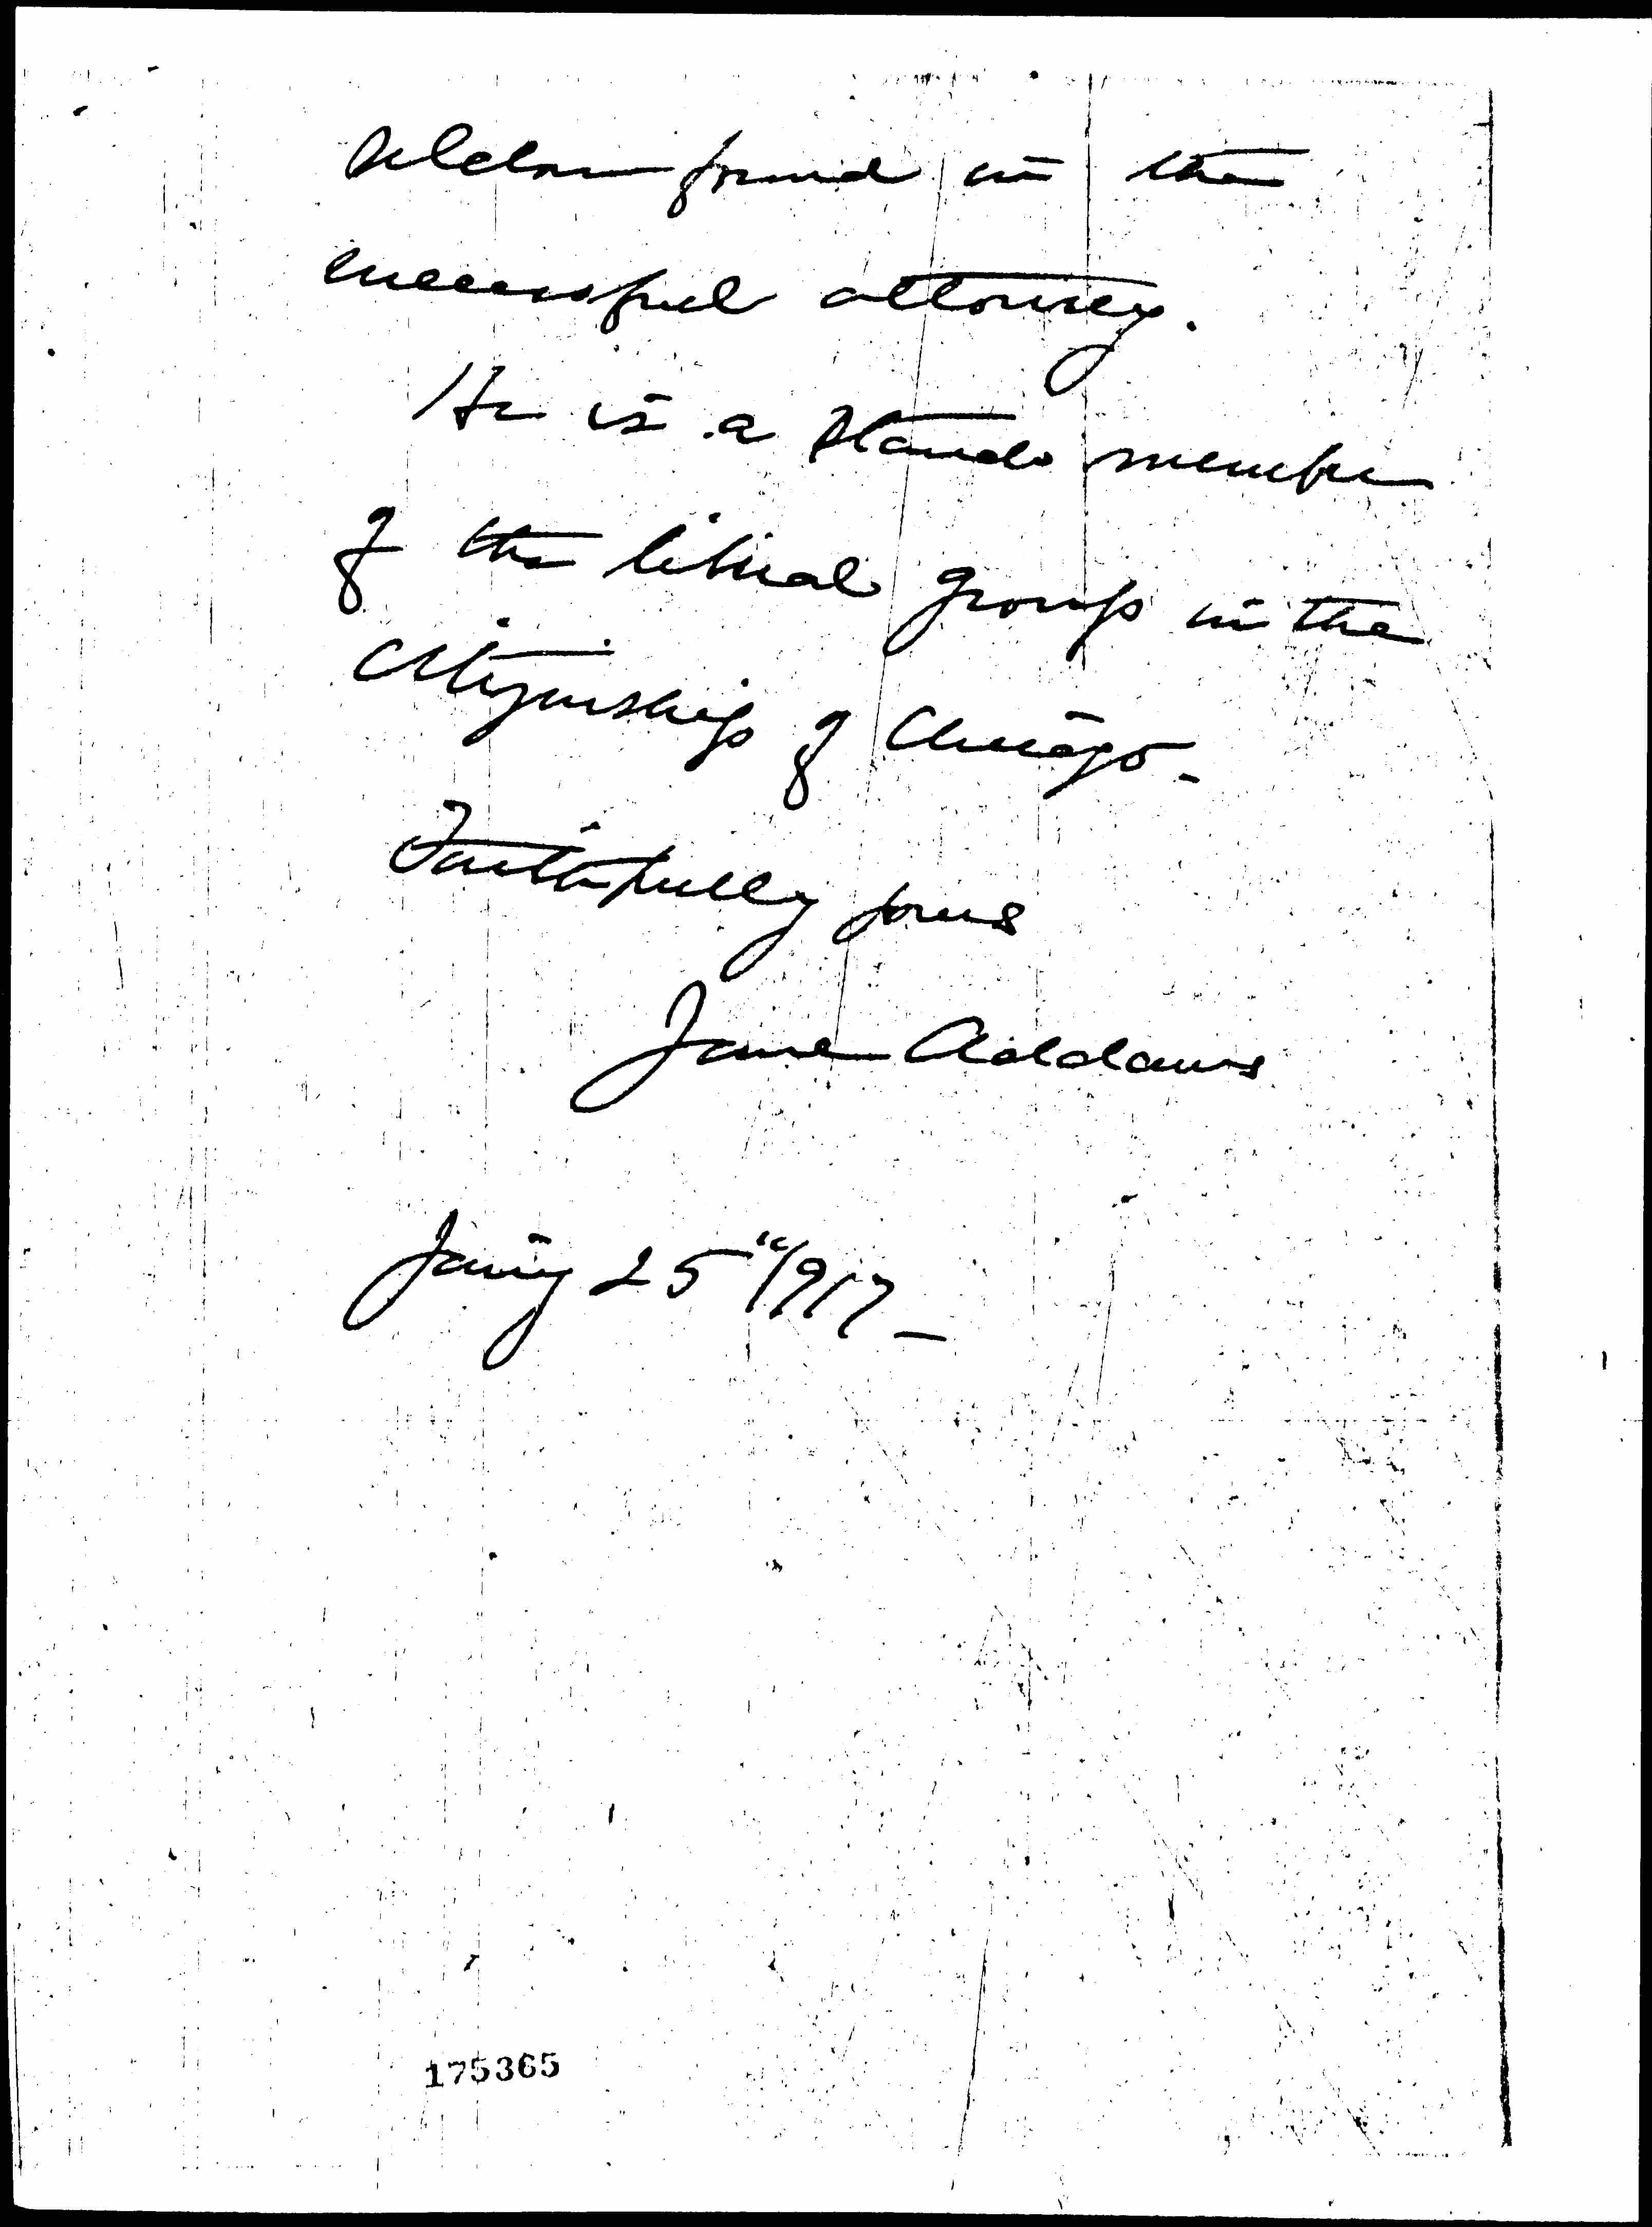 seldom found in the
successful attorney.
He is a staunch member
of the liberal group in the
citizenship of Chicago –
Faithfully yours
Jane Addams
Jan'y 25" 1917 –
175365